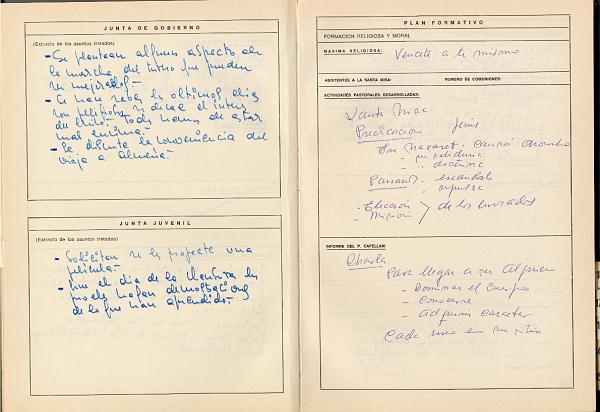 JUNTA DE GOBIERNO
(Extracto de los asuntos tratados)
- Se plantean algunos aspectos de
la marcha del turno que pueden
ser mejorados.-
- Se han los últimos días
son peligrosos si decae el interés
del . Todos hemos de estar
mas encima.-
- Se discute la conveniencia del
viaje a Almería.-
JUNTA JUVENIL
(Extracto de los asuntos tratados)
- Solicitan se les proyecte una
película.-
- que el día de la clausura los
hagan demostraciones
de lo que han aprendido.-
PLAN FORMATIVO
FORMACION RELIGIOSA Y MORAL
MAXIMA RELIGIOSA: Vencete a ti mismo
ASISTENTES A LA SANTA MISA: NUMERO DE COMUNIONES:
ACTIVIDADES PASTORALES DESARROLLADAS:
Santa Misa
Predicación Jesus
En Nazaret - causó asombro
- su sabiduria
- " doctrina
Paisanos - escandalo
- repulsa
- Elección
- Misión } de los enviados
INFORME DEL P. CAPELLAN:
Charla
Para llegar a ser Alguien
- Dominar el cuerpo
- Conocerse
- Adquirir caracter
Cada uno en su sitio